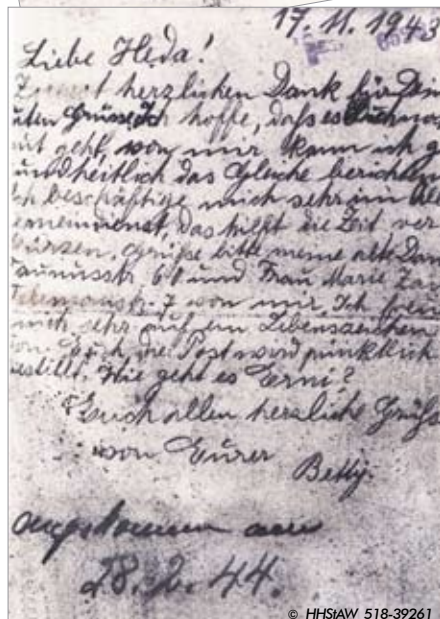 17. 11. 1943
Liebe Heda!
herzlichen Dank für Dein
uten Grüsse. Ich hoffe, dass es Euch noch
ut geht, von mir kann ich g
undheitlich das Gleiche berichten
ch beschäftige mich sehr im All
emeindienst, das hilft die Zeit ver
ürzen. Grüße bitte meine alte Dam
aunusstr. 61 und Frau Marie
7 von mir. Ich freu
mich sehr auf ein Lebenszeichen
von Euch, die Post wird pünktlich
estellt. Wie geht es Erni?
Euch allen herzliche Grüß
von Eurer
Betty.
angekommen am
28. 2. 44.
© HHStAW 518-39261